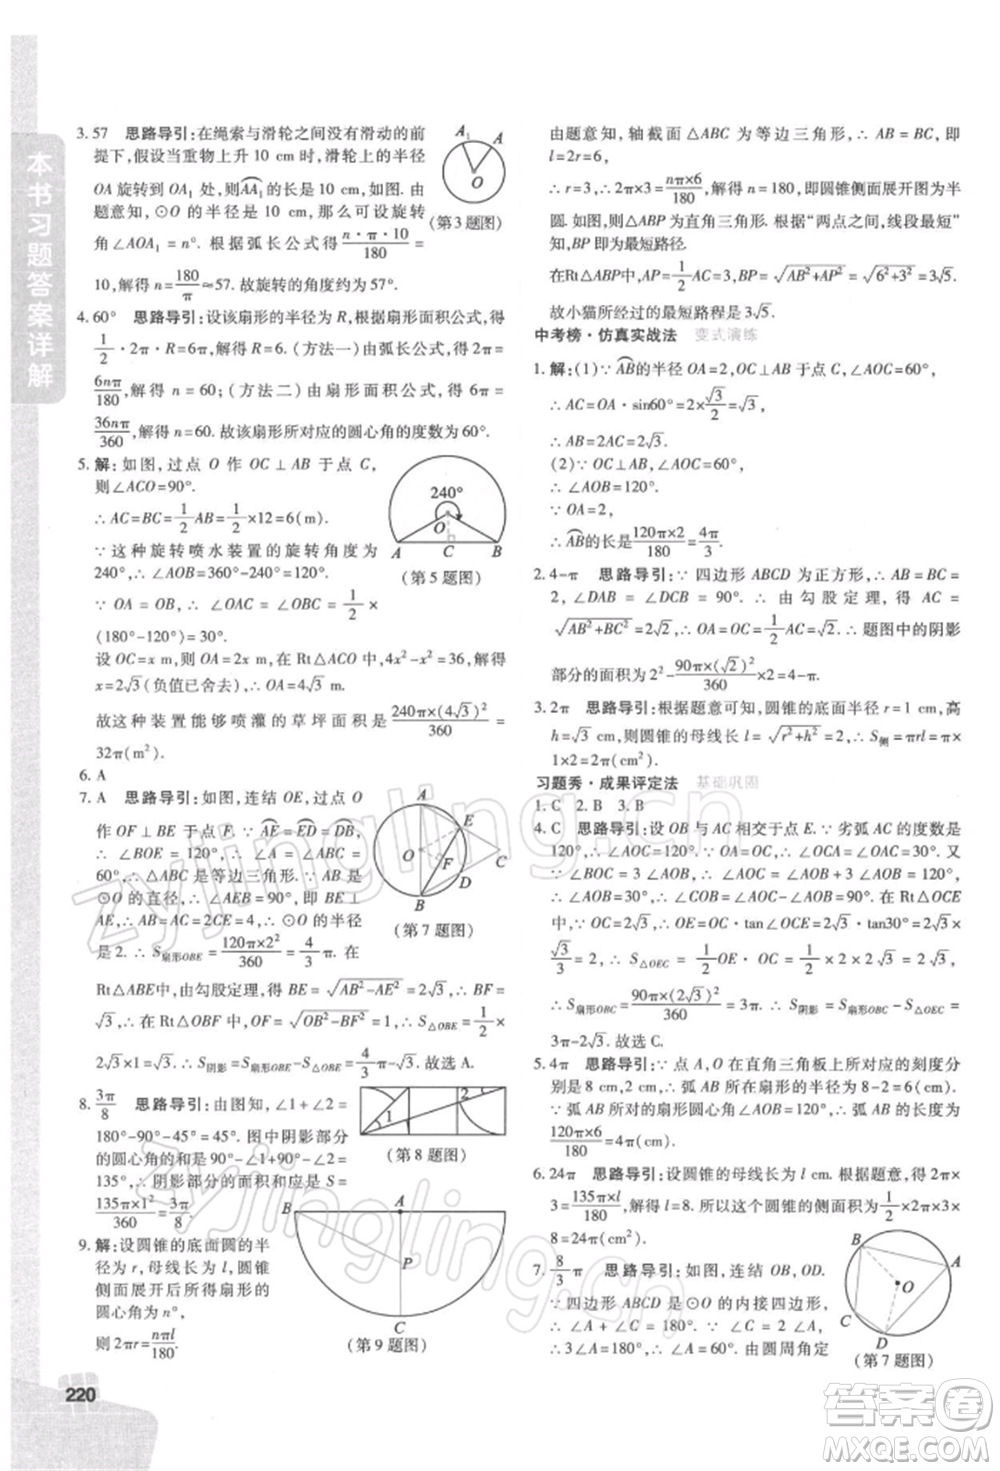 本书习题答案详解
3. 57 思路导引:在绳索与滑轮之间没有滑动的前
提下,假设当重物上升 10 cm 时,滑轮上的半径
OA 旋转到 OA₁ 位置,故 AA₁ 的长是 10 cm. 根
据题意知,⊙O 的半径是 10 cm,那么可设旋转
角∠AOA₁ = n°. 根据弧长公式知 n·π·10/180 =
10,解得 n = 180/π ≈ 57. 故旋转的角度约为 57°.
A₁
A
O
(第 3 题图)
4. 60° 思路导引:设该扇形的半径为 R,根据题意得
1/2·2π·R = 6π,解得 R = 6. (方法一)由弧长公式得
6nπ/180 = 2π,解得 n = 60;(方法二)由扇形面积公式,得
36nπ/360 = 6π,解得 n=60. 故该扇形所对应的圆心角的度数为 60°.
5. 解:如图,过点 O 作 OC⊥AB 于点 C,
则∠ACO=90°.
∴ AC=BC=1/2AB=1/2×12=6(m).
∵ 这种旋转喷水装置的旋转角度为
240°,∴ ∠AOB=360°-240°=120°.
∵ OA = OB, ∴ ∠OAC = ∠OBC = 1/2 ×
(180°-120°)= 30°.
240°
O
A C B
(第 5 题图)
设 OC=x m,则 OA=2x m. 在 Rt△ACO 中,4x²-x²=36,解得
x=2√3(负值已舍去),∴ OA=4√3 m.
故这种装置能够喷灌的草坪面积为 240π×(4√3)²/360 =
32π(m²).
6. A
7. A 思路导引:如图,连结 OE,过点 O
作 OF⊥BE 于点 F. ∵ AE=ED=DB,
∴ ∠BOE = 120°,∠AOE = 60°,
∴ △AOE 是等边三角形,∠ABE=30°.
∵ AB 为⊙O 的直径,∴ ∠AEB = 90°,即 BE⊥
AC. ∵ AC=4,∴ AE=2,∴ ⊙O 的半径
是 2. ∴ S扇形OBE = 120π×2²/360 = 4/3 π. 在
Rt△ABE 中,由勾股定理,得 BE = √(AB²-AE²) = 2√3,∴ BF =
√3,∴ 在 Rt△OBF 中,OF = √(OB²-BF²) = 1,∴ S△OBE = 1/2 ×
2√3×1=√3. ∴ S阴影=S扇形OBE-S△OBE=4/3π-√3. 故选 A.
A
E
O
F
C
D
B
(第 7 题图)
8. 3π/8 思路导引:由图知,∠1+∠2=
180°-90°-45°=45°. 图中阴影部分
的圆心角的和是 90°+90°-∠1-∠2=
135°,∴ 阴影部分的面积为 S =
135π×1²/360 = 3π/8.
1
2
(第 8 题图)
9. 解:设圆锥的底面圆的半
径为 r,母线长为 l,圆锥
侧面展开后所得扇形的
圆心角为 n°,
则 2πr=nπl/180.
A
B
P
C
(第 9 题图)
220
由题意知,轴截面△ABC 为等边三角形,故 AB=BC,即
l=2r=6,
∴ r=3,∴ 2π×3=nπ×6/180,∴ n=180,即圆锥侧面展开图为半
圆. 如图,△ABP 为直角三角形. 根据“两点之间,线段最短”
知,BP 为最短路径.
在Rt△ABP中,AP=1/2AC=3,∴ BP=√(AB²+AP²)=√(6²+3²)=3√5.
故小猫所经过的最短路程是 3√5.
中考榜·仿真实战法 变式演练
1. 解:(1)∵ AB的半径 OA=2,OC⊥AB于点 C,∠AOC=60°,
∴ AC=OA·sin60°=2×√3/2=√3,
∴ AB=2AC=2√3.
(2)∵ OC⊥AB,∠AOC=60°,
∴ ∠AOB=120°.
∵ OA=2,∴ AB的长是120π×2/180=4π/3.
2. 4-π 思路导引:∵ 四边形 ABCD 为正方形,∴ AB=BC=
2,∠DAB=∠DCB=90°. ∴ 由勾股定理,得 AC=
√(AB²+BC²)=2√2,∴ OA=OC=√2,∴ 题图中的阴影
部分的面积为 2²-90π×(√2)²/360×2=4-π.
3. 2π 思路导引:根据题意可知,圆锥的底面半径 r=1 cm,高
h=√3 cm,∴ 圆锥的母线长 l=√(r²+h²)=2,∴ S侧=πrl=π×
1×2=2π(cm²).
习题秀·成果评定法 基础巩固
1. C 2. B 3. B
4. C 思路导引:设 OB 与 AC 相交于点 E. ∵ 劣弧 AC 的度数是
120°,∴ ∠AOC=120°. ∵ OA=OC,∴ ∠OCA=∠OAC=30°. 又
∵ ∠BOC=3∠AOB,∴ ∠AOC=∠AOB+3∠AOB=120°,
∴ ∠AOB=30°,∴ ∠COB=∠AOC-∠AOB=90°. 在 Rt△OCE
中,OC=2√3,∴ OE=OC·tan∠OCE=2√3·tan30°=2√3×
√3/3=2,∴ S△OEC=1/2OE·OC=1/2×2×2√3=2√3,
∴ S扇形OBC=90π×(2√3)²/360=3π,∴ S阴影=S扇形OBC-S△OEC=3π-
2√3. 故选 C.
5. 4π 思路导引:∵ 点 A,O 在直角三角板上所对应的刻度分
别是 8 cm,2 cm,∴ 弧 AB 所在扇形的半径为 8-2=6(cm).
∵ 弧 AB 所对的扇形圆心角∠AOB=120°,∴ 弧 AB 的长度为
120π×6/180=4π(cm).
6. 24π 思路导引:设圆锥的母线长为 l cm. 根据题意,得 2π×
3=135π×l/180,解得 l=8. 所以这个圆锥的侧面积为 π×3×8=
24π(cm²).
7. 8/3π 思路导引:如图,连结 OB,OD.
∵ 四边形 ABCD 是⊙O 的内接四边形,
∴ ∠C+∠A=180°. ∵ ∠C=2∠A,
∴ 3∠A=180°,∴ ∠A=60°. 由圆周角定
B
A
O
C
D
(第 7 题图)
zyjingling.cn
zyjingling.cn
答案圈
MXQE.COM